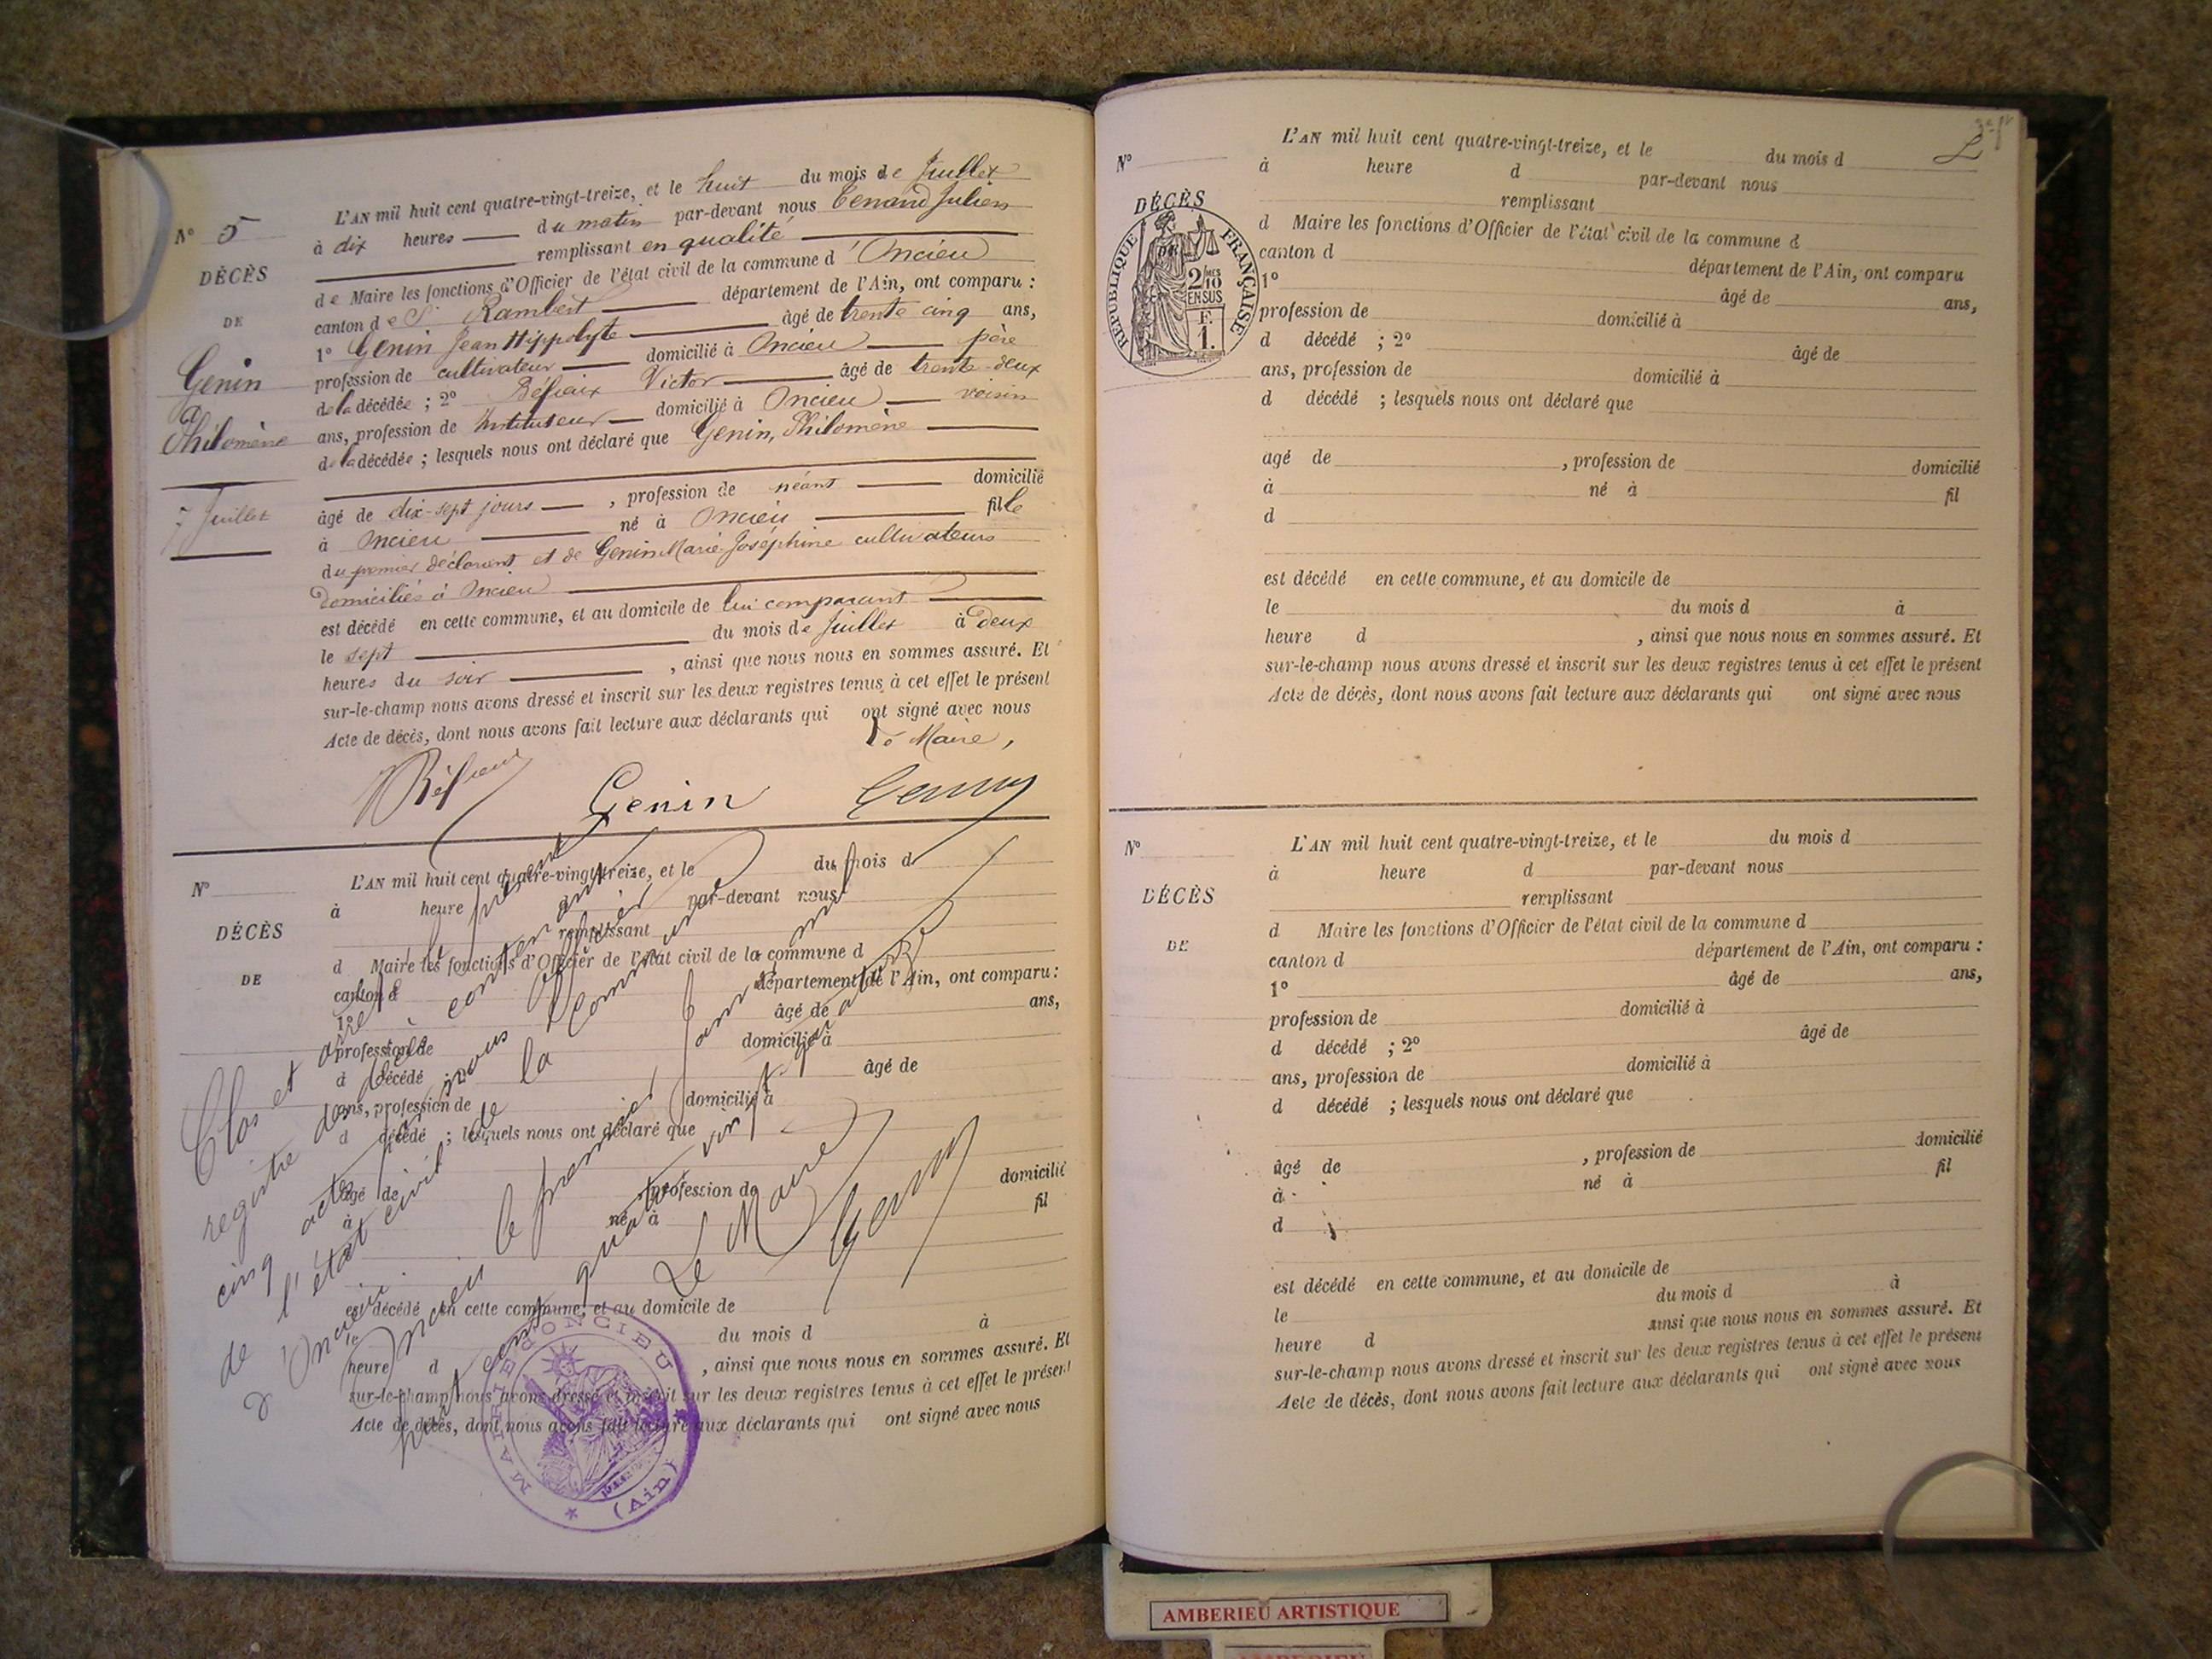 L'AN mil huit cent quatre-vingt-treize, et le huit du mois de Juillet
à dix heures du matin par-devant nous Tenand Julien
remplissant en qualité
de Maire les fonctions d'Officier de l'état civil de la commune d'Oncieu
canton de St Rambert département de l'Ain, ont comparu :
1° Genin Jean Hippolyte âgé de trente cinq ans,
profession de cultivateur domicilié à Oncieu père
de la décédée ; 2° Béfieux Victor âgé de trente-deux
ans, profession de Instituteur domicilié à Oncieu voisin
de la décédée ; lesquels nous ont déclaré que Genin, Philomène
âgé de dix-sept jours , profession de néant domicilié
à Oncieu né à Oncieu fille
du premier déclarant et de Genin Marie Joséphine cultivateurs
domiciliés à Oncieu
est décédé en cette commune, et au domicile de lui comparant
le sept du mois de Juillet à deux
heures du soir , ainsi que nous nous en sommes assuré. Et
sur-le-champ nous avons dressé et inscrit sur les deux registres tenus à cet effet le présent
Acte de décès, dont nous avons fait lecture aux déclarants qui ont signé avec nous
Maire,
Genin
N° 5
DÉCÈS
DE
Genin
Philomène
7 Juillet
N°
DÉCÈS
DE
L'AN mil huit cent quatre-vingt-treize, et le du mois d
à heure par-devant nous
remplissant
d Maire les fonctions d'Officier de l'état civil de la commune d
canton d département de l'Ain, ont comparu :
1° âgé de ans,
profession de domicilié à
d décédé ; 2° âgé de
ans, profession de domicilié à
d décédé ; lesquels nous ont déclaré que
âgé de , profession de domicilié
à né à fil
est décédé en cette commune, et au domicile de
le du mois d à
heure d , ainsi que nous nous en sommes assuré. Et
sur-le-champ nous avons dressé et inscrit sur les deux registres tenus à cet effet le présent
Acte de décès, dont nous avons fait lecture aux déclarants qui ont signé avec nous
Clos et arrêté le présent
registre des décès contenant
cinq actes par nous officier
de l'état civil de la commune
d'Oncieu.
Oncieu le premier janvier mil
huit cent quatre vingt quatorze
Le Maire
MAIRIE D'ONCIEU
(Ain)
N°
DÉCÈS
DE
RÉPUBLIQUE FRANÇAISE
2/10mes
EN SUS
F.
1.
L'AN mil huit cent quatre-vingt-treize, et le du mois d
à heure d par-devant nous
remplissant
d Maire les fonctions d'Officier de l'état civil de la commune d
canton d département de l'Ain, ont comparu
1° âgé de ans,
profession de domicilié à
d décédé ; 2° âgé de
ans, profession de domicilié à
d décédé ; lesquels nous ont déclaré que
agé de , profession de domicilié
à né à fil
d
est décédé en cette commune, et au domicile de
le du mois d à
heure d , ainsi que nous nous en sommes assuré. Et
sur-le-champ nous avons dressé et inscrit sur les deux registres tenus à cet effet le présent
Acte de décès, dont nous avons fait lecture aux déclarants qui ont signé avec nous
N°
DÉCÈS
DE
L'AN mil huit cent quatre-vingt-treize, et le du mois d
à heure d par-devant nous
remplissant
d Maire les fonctions d'Officier de l'état civil de la commune d
canton d département de l'Ain, ont comparu :
1° âgé de ans,
profession de domicilié à
d décédé ; 2° âgé de
ans, profession de domicilié à
d décédé ; lesquels nous ont déclaré que
âgé de , profession de domicilié
à né à fil
d
est décédé en cette commune, et au domicile de
le du mois d à
heure d ainsi que nous nous en sommes assuré. Et
sur-le-champ nous avons dressé et inscrit sur les deux registres tenus à cet effet le présent
Acte de décès, dont nous avons fait lecture aux déclarants qui ont signé avec nous
AMBERIEU ARTISTIQUE
AMBERIEU